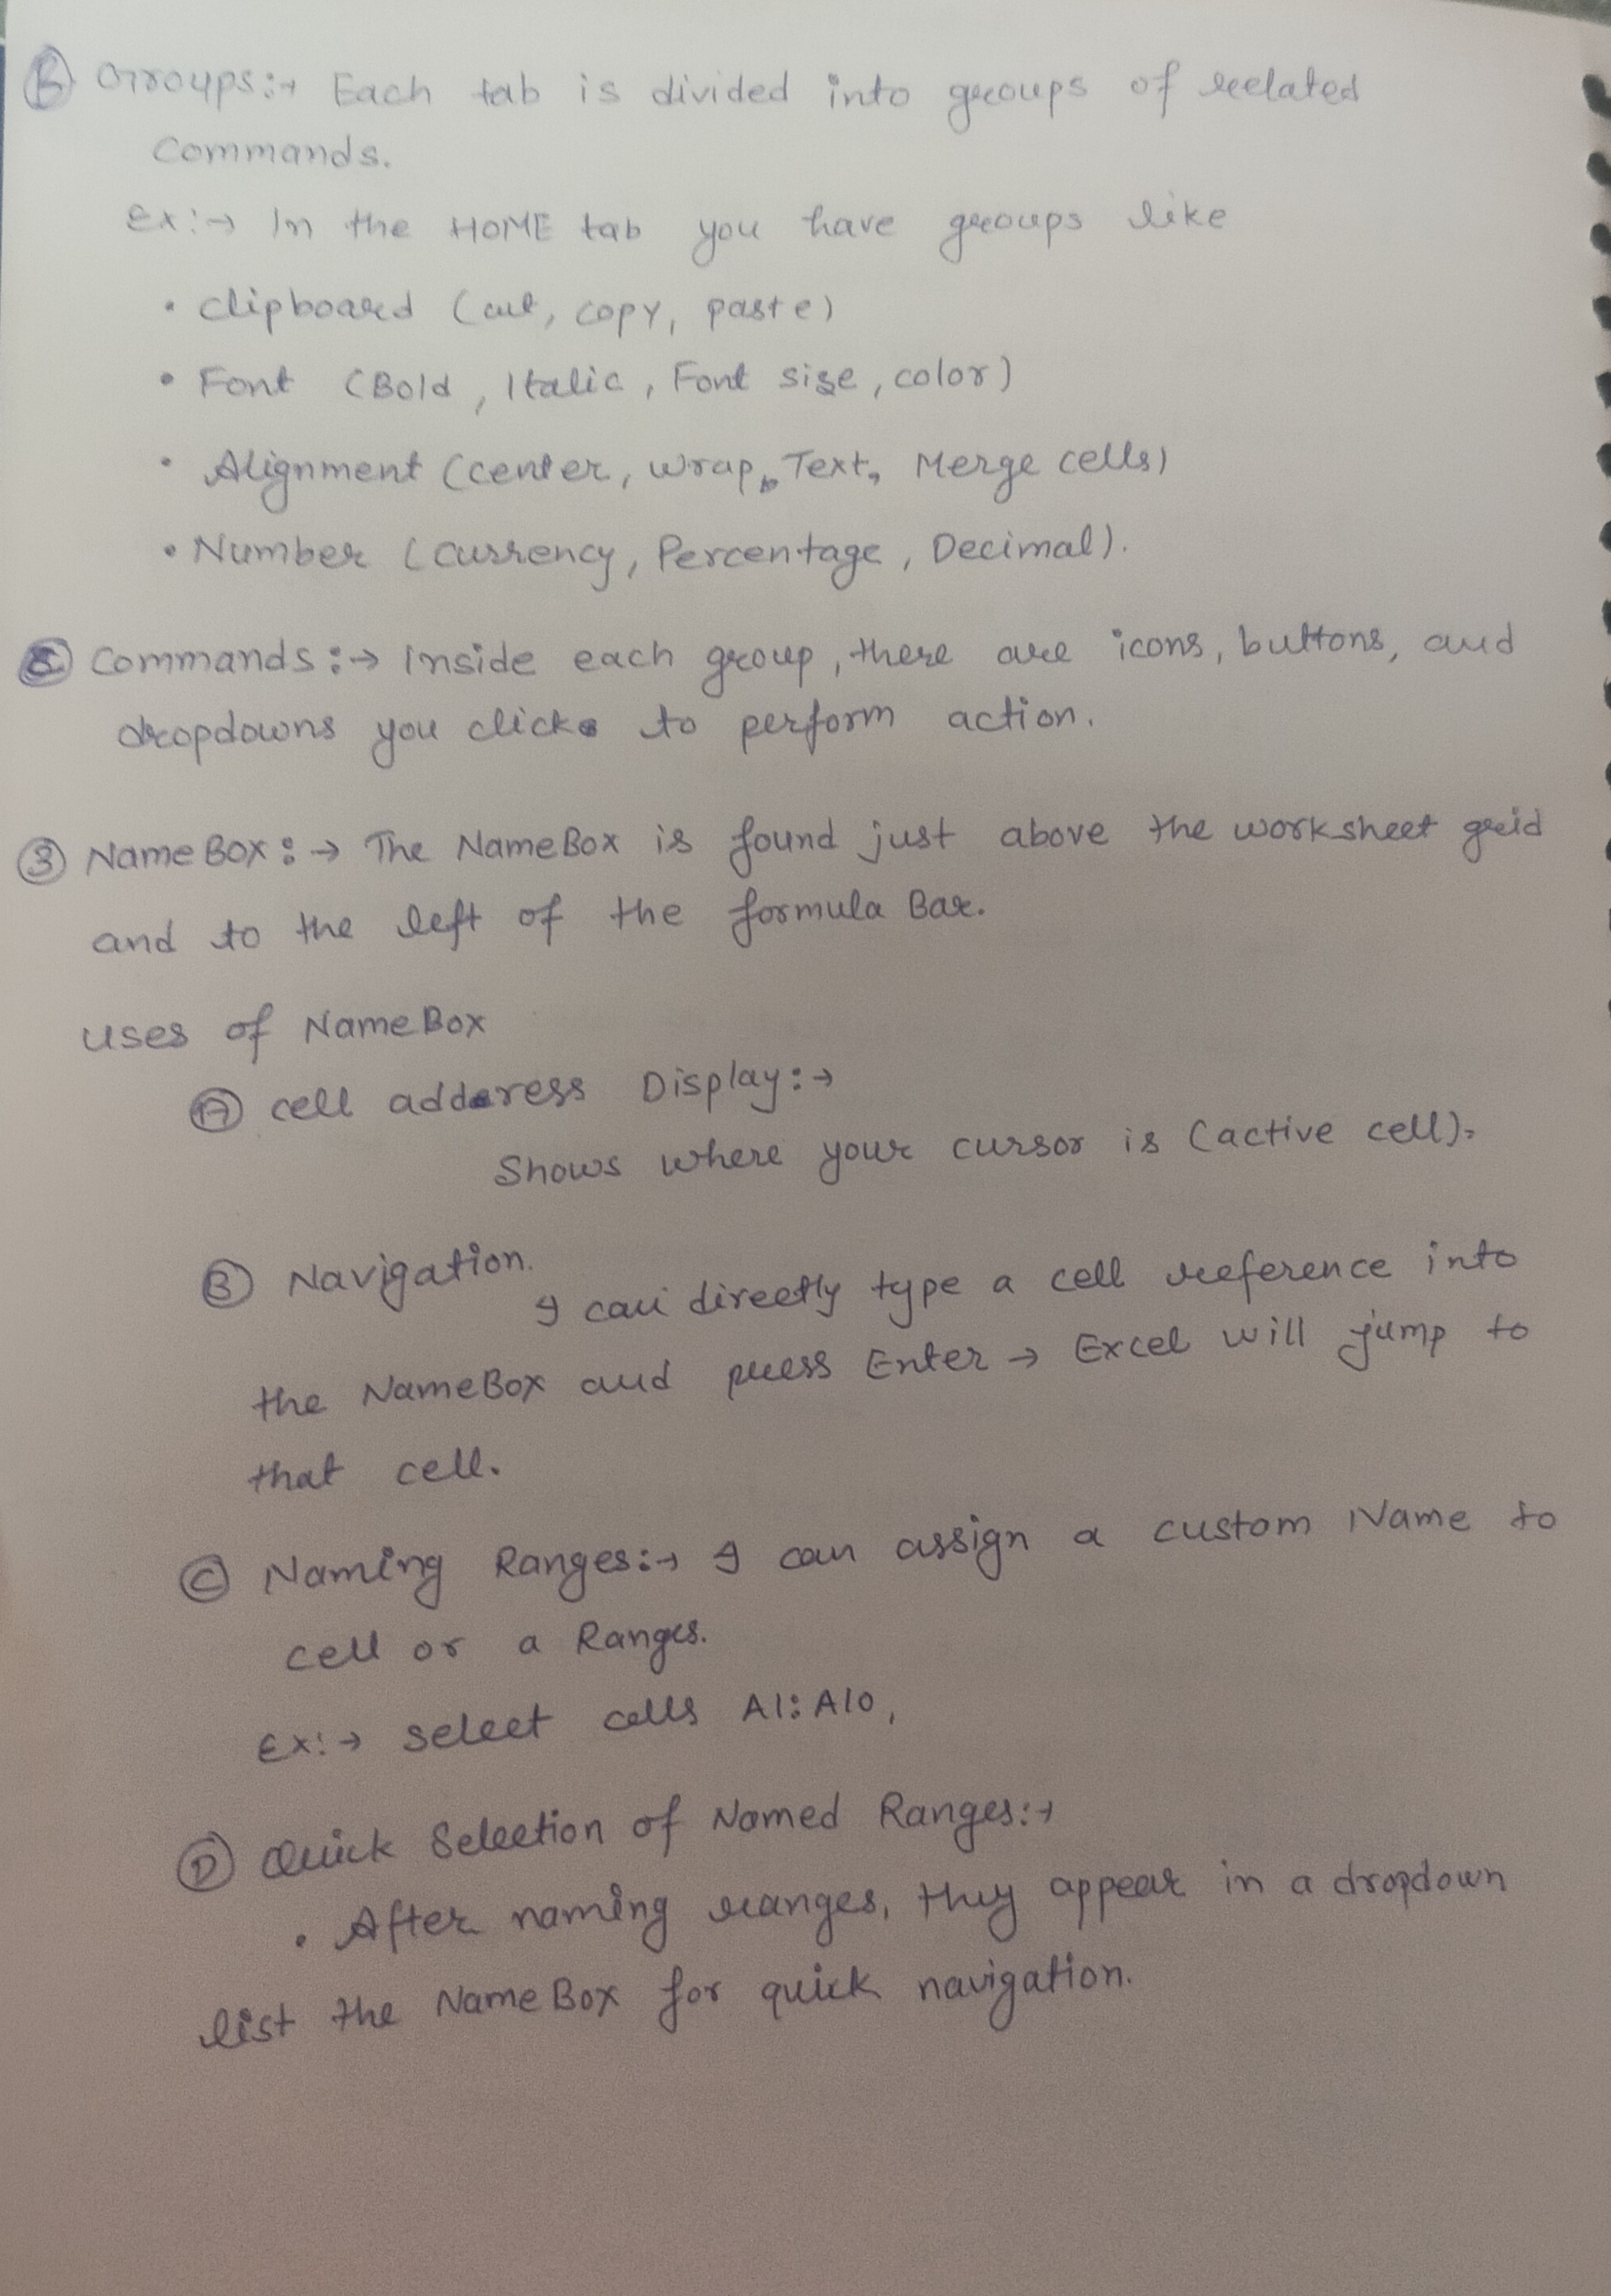 Ⓑ Groups:→ Each tab is divided into groups of related
Commands.
Ex:→ In the HOME tab you have groups like
• Clipboard (cut, copy, paste)
• Font (Bold, Italic, Font size, color)
• Alignment (center, wrap, Text, Merge cells)
• Number (currency, Percentage, Decimal).
Ⓒ Commands:→ Inside each group, there are icons, buttons, and
dropdowns you click to perform action.
③ NameBox:→ The NameBox is found just above the worksheet grid
and to the left of the formula Bar.
Uses of NameBox
Ⓐ cell address Display:→
Shows where your cursor is (active cell).
Ⓑ Navigation.
I can directly type a cell reference into
the NameBox and press Enter → Excel will jump to
that cell.
Ⓒ Naming Ranges:→ I can assign a custom Name to
cell or a Ranges.
Ex:→ select cells A1:A10,
Ⓓ Quick Selection of Named Ranges:→
• After naming ranges, they appear in a dropdown
list the NameBox for quick navigation.